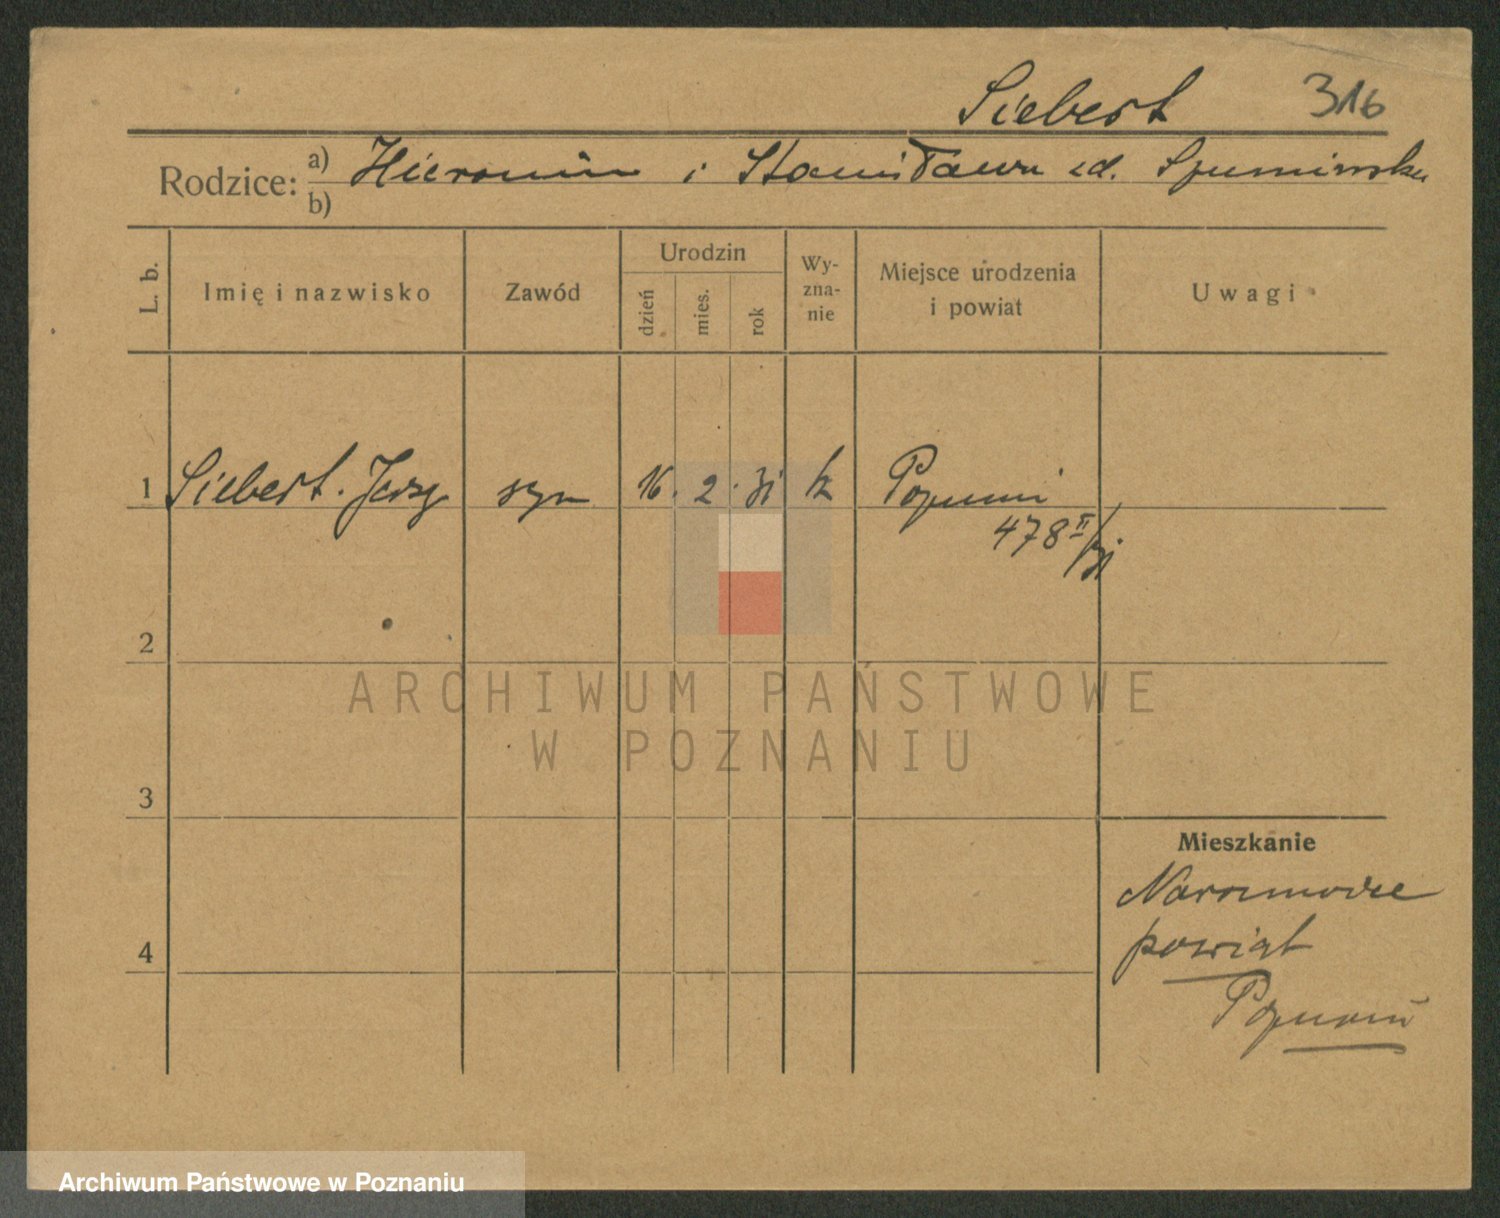 Siebert 316
Rodzice: a) Hieronim i Stanisława zd. Szumińska
b)
L. b. Imię i nazwisko Zawód Urodzin dzień mies. rok Wy-zna-nie Miejsce urodzenia i powiat Uwagi
1 Siebert Jerzy syn 16. 2. 31 k Poznań
478 II/31
2
ARCHIWUM PAŃSTWOWE
W POZNANIU
3
Mieszkanie
4
powiat
Poznań
Archiwum Państwowe w Poznaniu